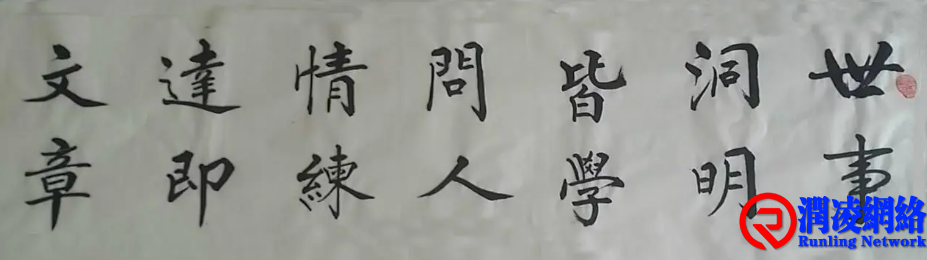 世事
洞明
皆學
問人
情練
達即
文章
潤凌網絡
Runling Network